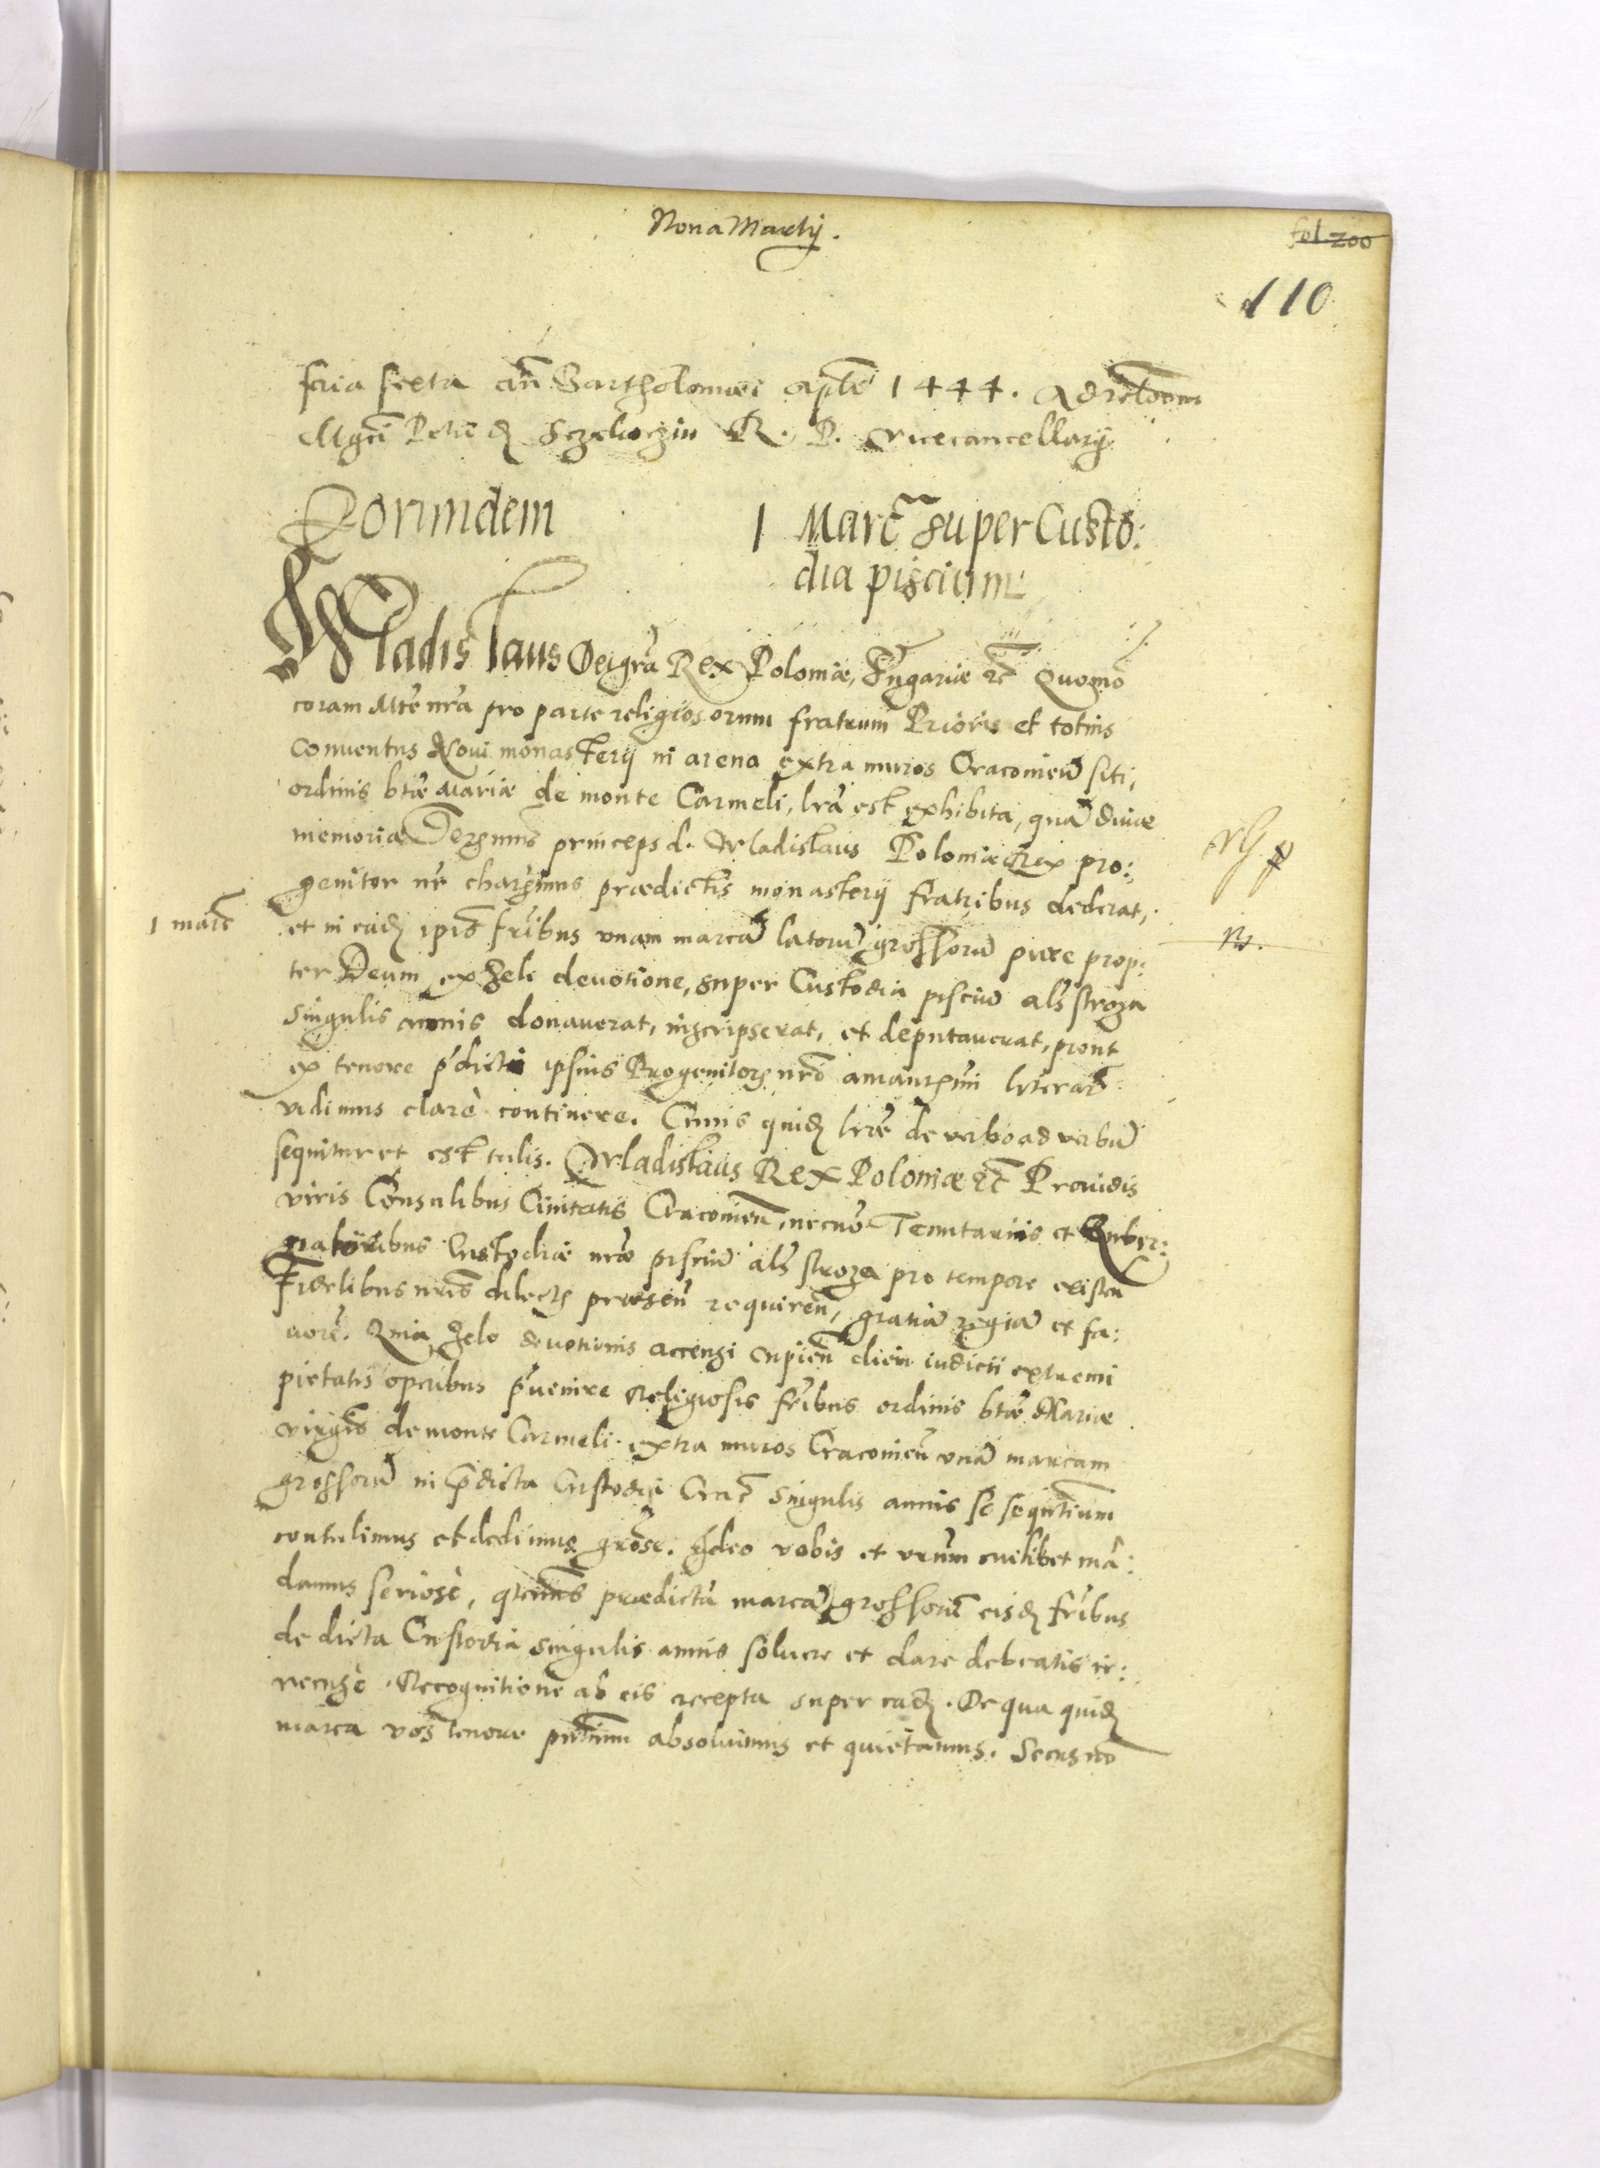 Nona Martij.
fol. 200
110
feria sexta añ Bartholomæi aptē 1444. Ad rel̃onem
Mgcī Petri de Sczekoczin R. P. vicecancellarij
Eorundem
1 Marc̃ super Custo:
dia piscium
Wladislaus Dei grã Rex Poloniæ, Hungariæ etc̃ Quomō
coram Mtē nrã pro parte religiosorum fratrum Prioris et totius
Conuentus Noui monasterij in arena extra muros Cracouien̄ siti,
ordinis btæ Mariæ de monte Carmeli, lrã est exhibita, quã diuæ
memoriæ Serenmus princeps d. Wladislaus Poloniæ Rex pro:
genitor nr̃ charissimus prædictis monasterij fratribus dederat,
1 marc̃
et in eadē ipīs fribus vnam marcã latorū grossorū pure prop:
ter Deum, ex zeli deuotione, super Custodia pisciū als stroza
singulis annis donauerat, inscripserat, et deputauerat, prout
ex tenore pdicti ipsius Progenitoris nrĩ amantissimi literarū
vidimus clarè continere. Cuius quidē lræ de verbo ad verbū
sequitur et est talis. Wladislaus Rex Poloniæ etc̃ Prouidis
viris Consulibus Ciuitatis Cracouien̄, necnō Tenutariis et Guber:
natoribus Custodiæ nræ pisciū als stroza pro tempore existen̄
Fidelibus nrīs dilectis præsen̄ requiren̄, gratiã regiã et fa:
uorē. Quia zelo deuotionis accensi cupien̄ diem iudicii extremi
pietatis operibus pr̃uenire Religiosis fribus ordinis btæ Mariæ
virgīs de monte Carmeli extra muros Cracouien̄ vnã marcam
grossorū in p̄dicta Custodia Crac̃ singulis annis se sequētium
contulimus et dedimus grõse. Ideo vobis et vrūm cuilibet mã:
damus seriosè, qtenus prædictã marcã grossorū eisdē fribus
de dicta Custodia singulis annis soluere et dare debeatis ir:
recusè. Recognitione ab eis recepta super eadē. De qua quidē
marca vos tenore pñtium absoluimus et quietamus. Secus nō